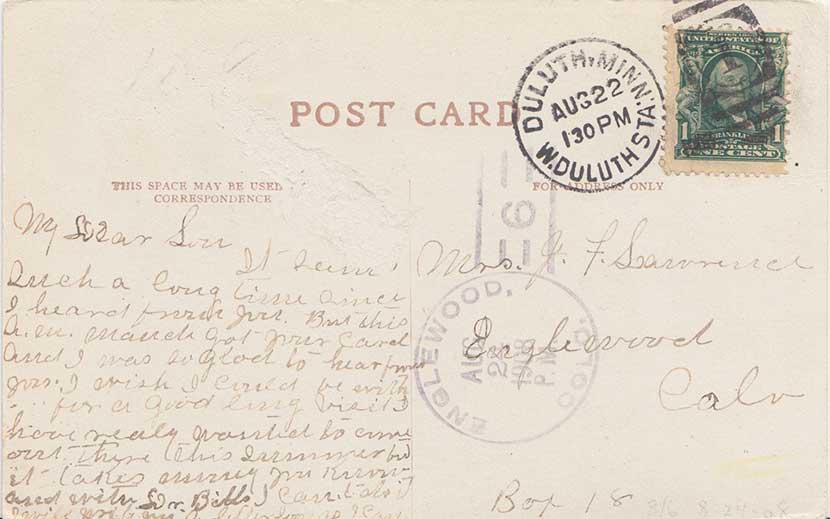 POST CARD
THIS SPACE MAY BE USED
CORRESPONDENCE
My Dear Lou
It seems
such a long time since
I heard from you. But this
a.m. got your card
and I was so glad to hear from
you. I wish I could be with
for a good long visit I
have realy wanted to come
out there this summer but
it takes money you know
and with Dr. Bills I can't do it
FOR ADDRESS ONLY
Mrs. J. F. Lawrence
Englewood
Colo
Box 18
8/6 8-24-08
DULUTH, MINN.
AUG 22
130 PM
W. DULUTH STA.
SERIES 1902
UNITED STATES OF
AMERICA
1 FRANKLIN 1
POSTAGE
ONE CENT
ENGLEWOOD, COLO.
AUG
24
1908
P.M.